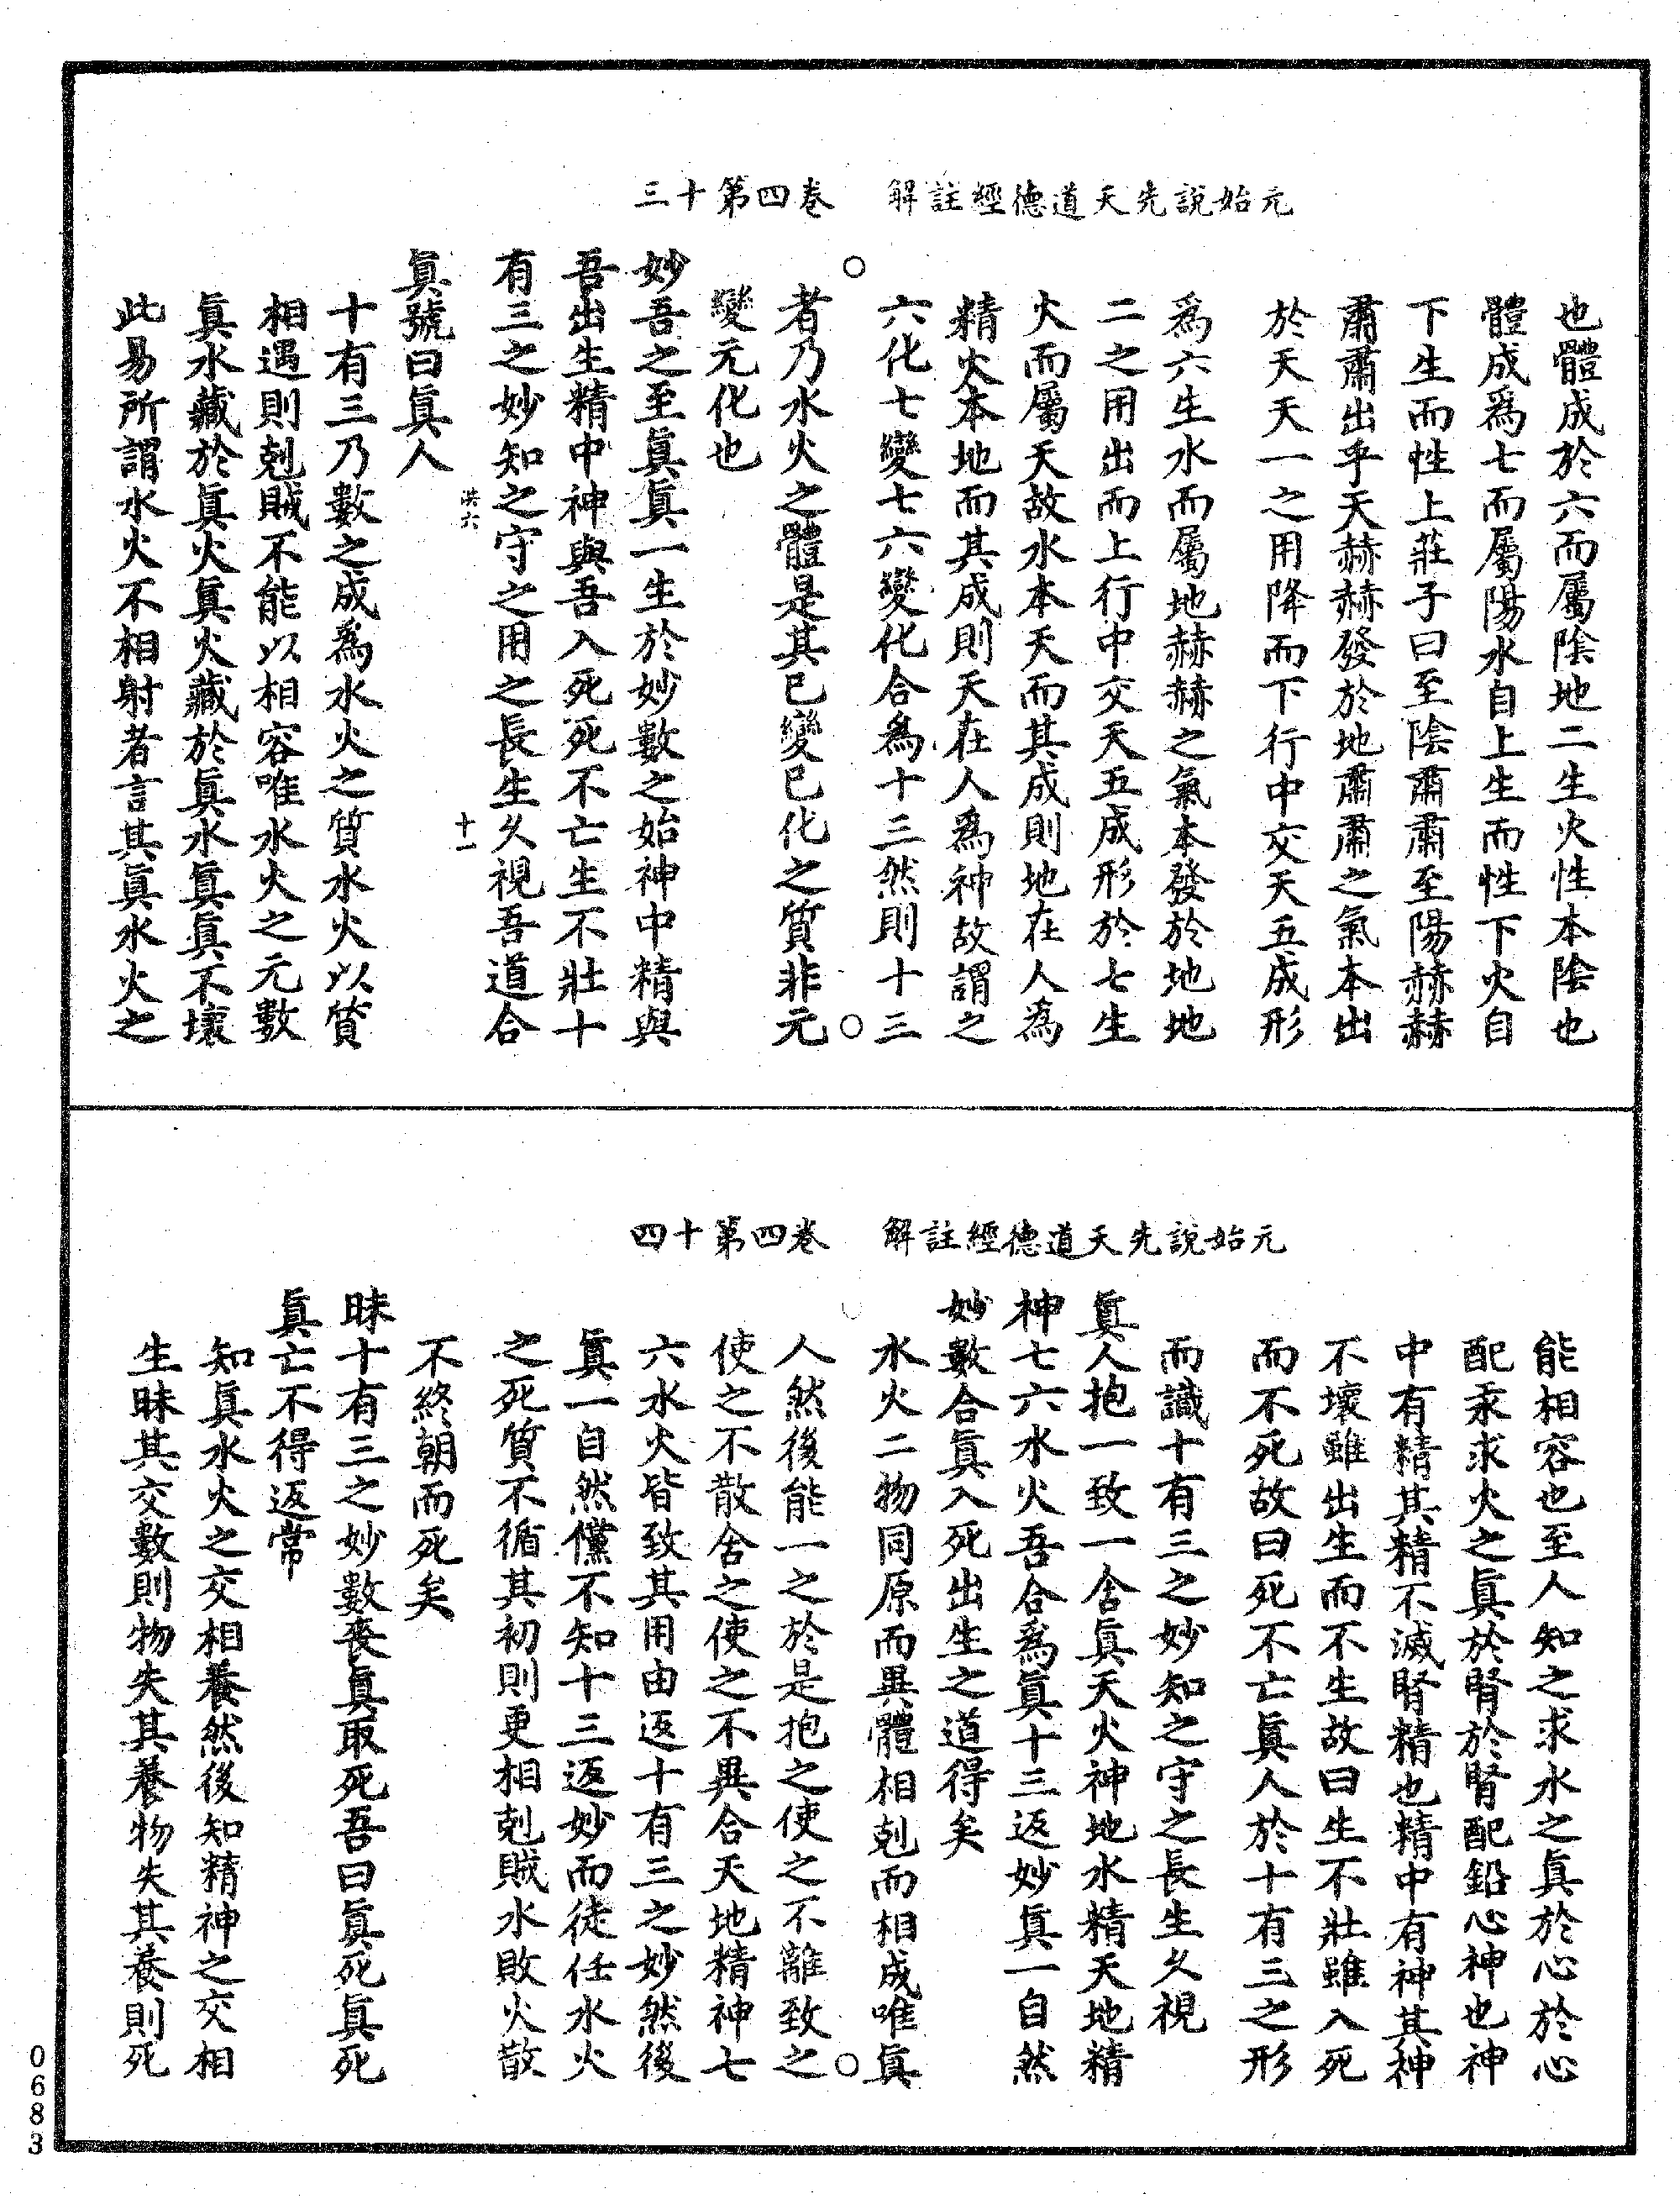 元始說先天道德經註解　卷四第十三
也體成於六而屬陰地二生火性本陰也
體成爲七而屬陽水自上生而性下火自
下生而性上莊子曰至陰肅肅至陽赫赫
肅肅出乎天赫赫發於地肅肅之氣本出
於天天一之用降而下行中交天五成形
爲六生水而屬地赫赫之氣本發於地地
二之用出而上行中交天五成形於七生
火而屬天故水本天而其成則地在人爲
精火本地而其成則天在人爲神故謂之
六化七變七六變化合爲十三然則十三
者乃水火之體是其已變已化之質非元
變元化也
妙吾之至眞眞一生於妙數之始神中精與
吾出生精中神與吾入死死不亡生不壯十
有三之妙知之守之用之長生久視吾道合
洪六　十一
眞號曰眞人
十有三乃數之成爲水火之質水火以質
相遇則剋賊不能以相容唯水火之元數
眞水藏於眞火眞火藏於眞水眞眞不壞
此易所謂水火不相射者言其眞水火之
元始說先天道德經註解　卷四第十四
能相容也至人知之求水之眞於心於心
配汞求火之眞於腎於腎配鉛心神也神
中有精其精不滅腎精也精中有神其神
不壞雖出生而不生故曰生不壯雖入死
而不死故曰死不亡眞人於十有三之形
而識十有三之妙知之守之長生久視
眞人抱一致一舍眞天火神地水精天地精
神七六水火吾合爲眞十三返妙眞一自然
妙數合眞入死出生之道得矣
水火二物同原而異體相剋而相成唯眞
人然後能一之於是抱之使之不離致之
使之不散舍之使之不異合天地精神七
六水火皆致其用由返十有三之妙然後
眞一自然儻不知十三返妙而徒任水火
之死質不循其初則更相剋賊水敗火散
不終朝而死矣
昧十有三之妙數喪眞取死吾曰眞死眞死
眞亡不得返常
知眞水火之交相養然後知精神之交相
生昧其交數則物失其養物失其養則死
0683